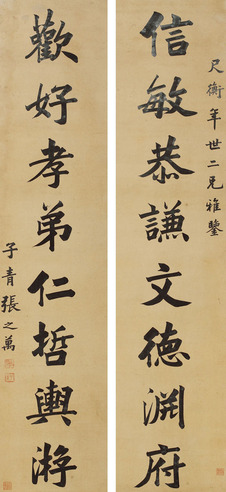 尺衡年世二兄雅鑒
信敏恭謙文德淵府
歡好孝弟仁哲輿游
子青張之萬